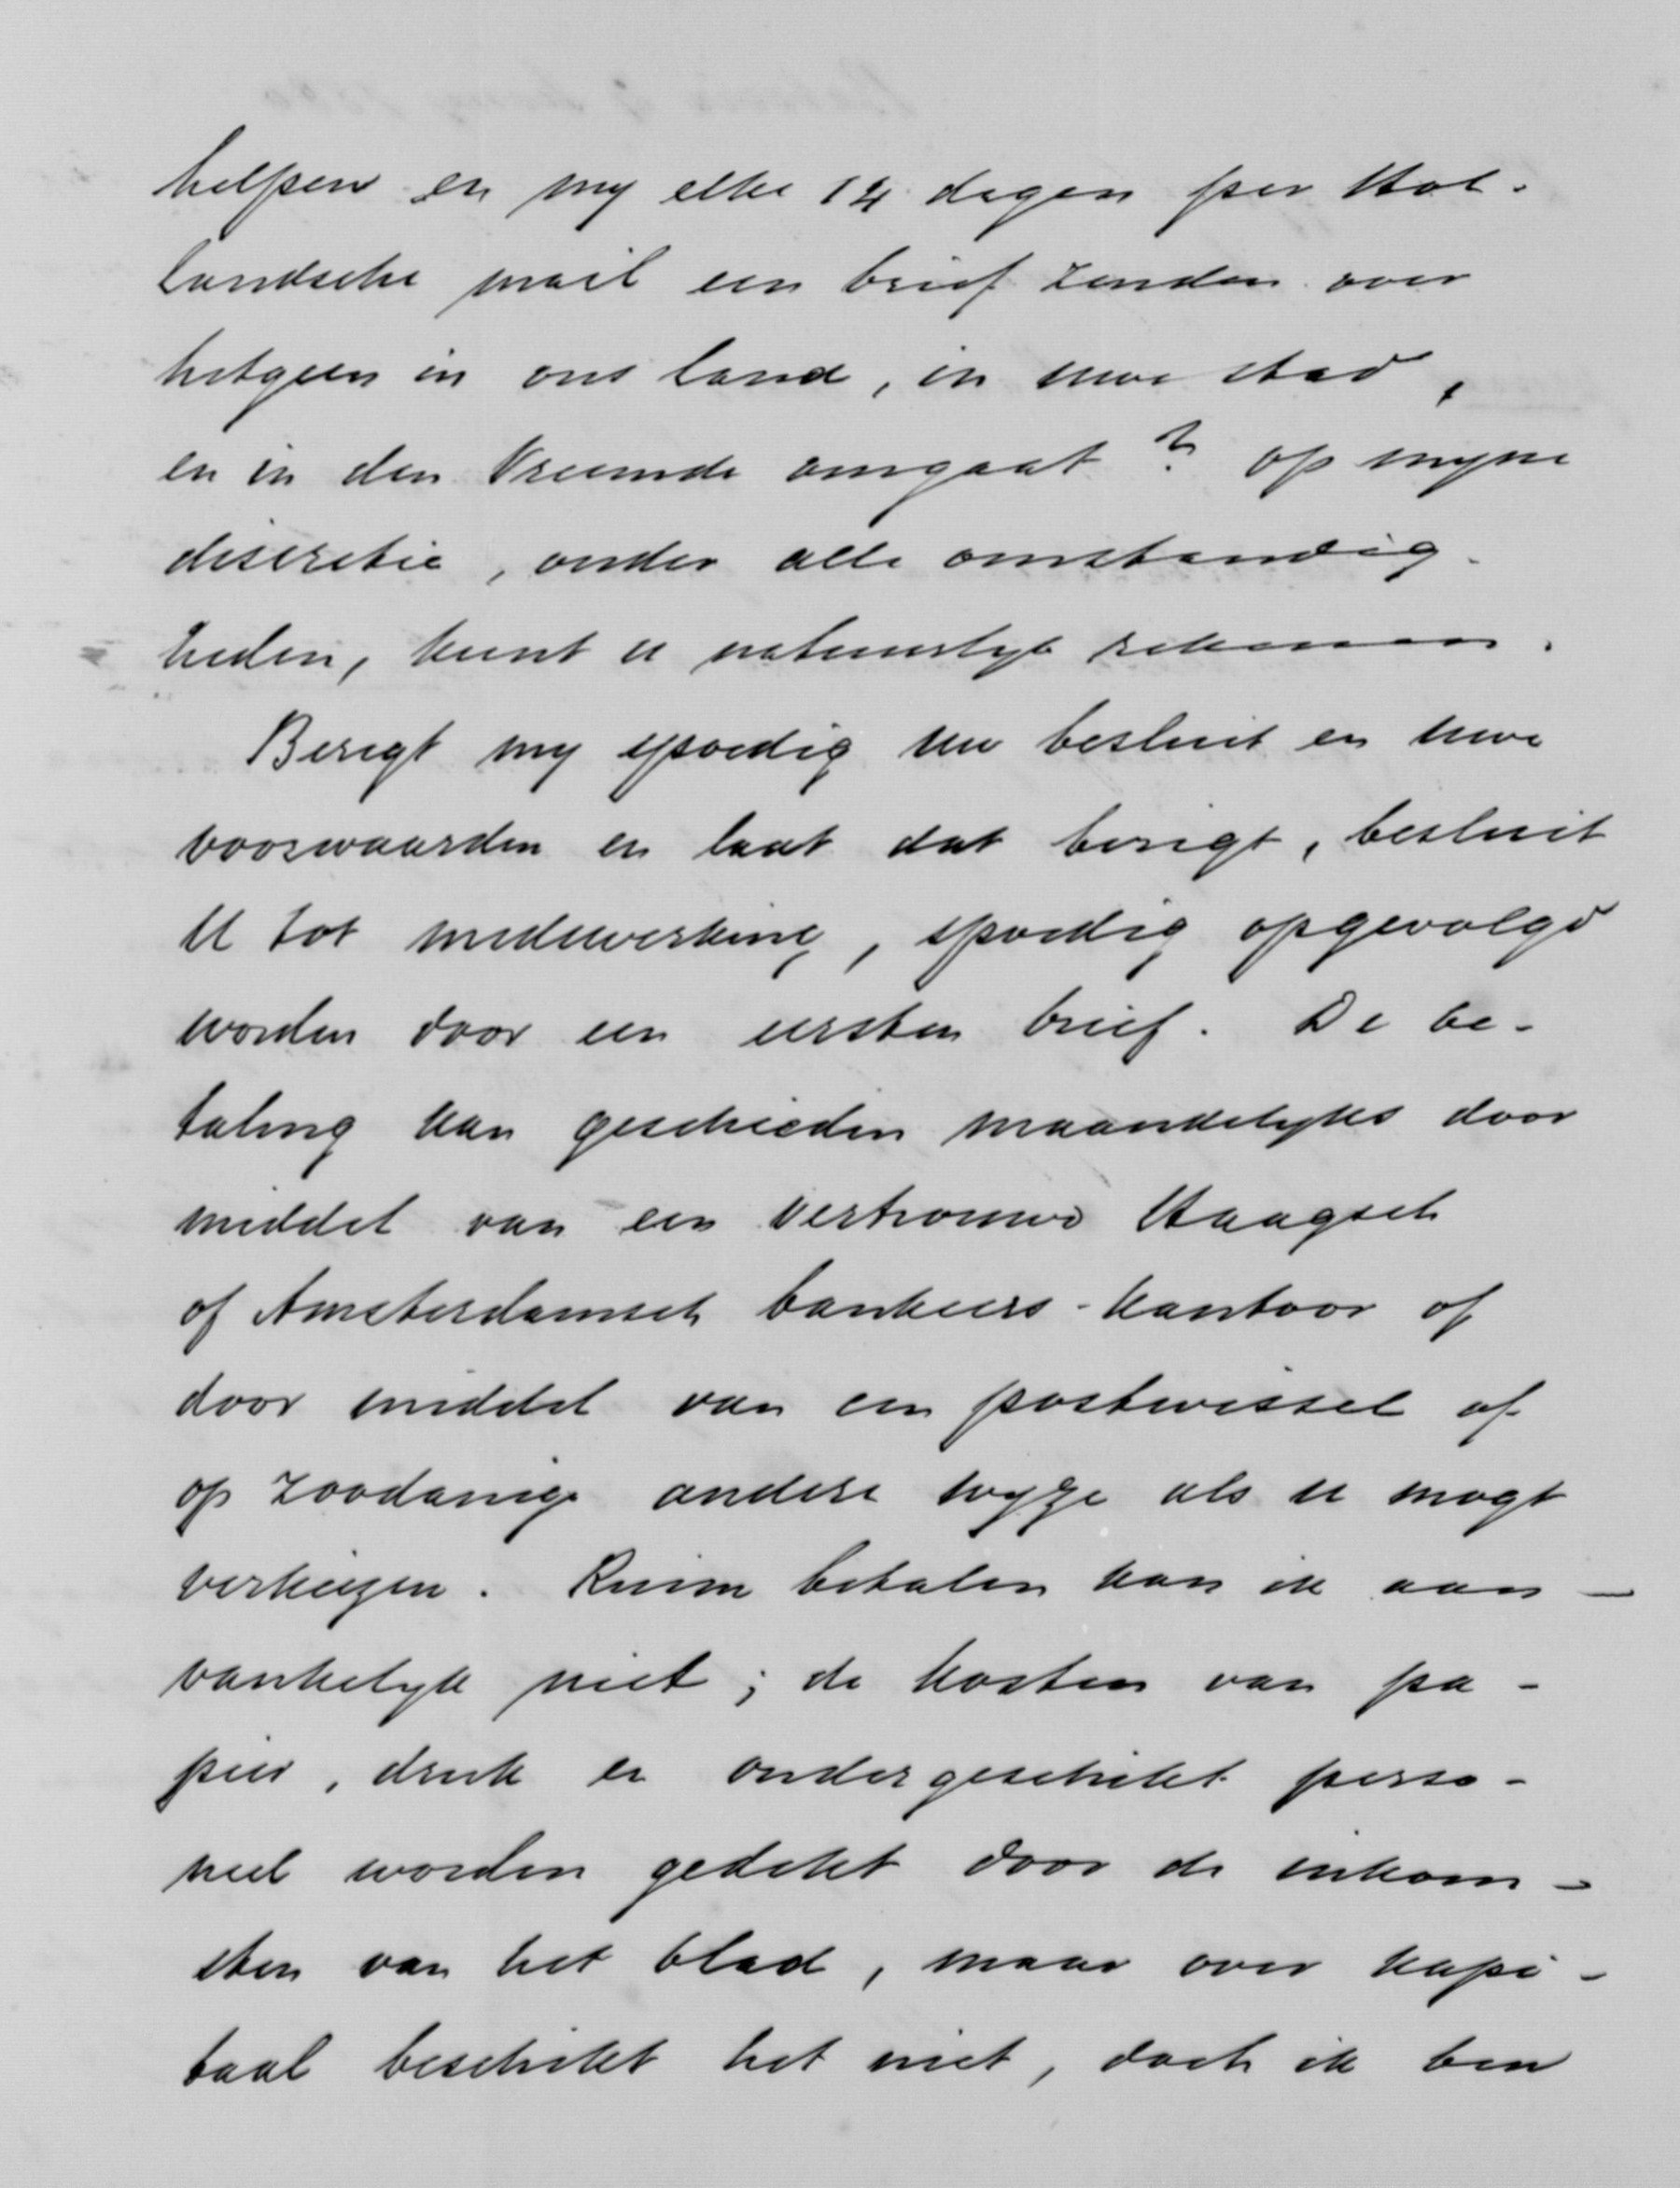 helpen en my elke 14 dagen per Hol-
landsche mail een brief zenden over
hetgeen in ons land, in uwe stad,
en in den Vreemde omgaat? op myne
discretie, onder alle omstandig-
heden, kunt u natuurlyk rekenen.
Berigt my spoedig uw besluit en uwe
voorwaarden en laat dat berigt, besluit
U tot medewerking, spoedig opgevolgd
worden door een eersten brief. De be-
taling kan geschieden maandelyks door
middel van een vertrouwd Haagsch
of Amsterdamsch bankiers-kantoor of
door middel van een postwissel of
op zoodanige andere wyze als u mogt
verkiezen. Ruim betalen kan ik aan-
vankelyk niet; de kosten van pa-
pier, druk en ondergeschikt perso-
neel worden gedekt door de inkom-
sten van het blad, maar over kapi-
taal beschikt het niet, doch ik ben